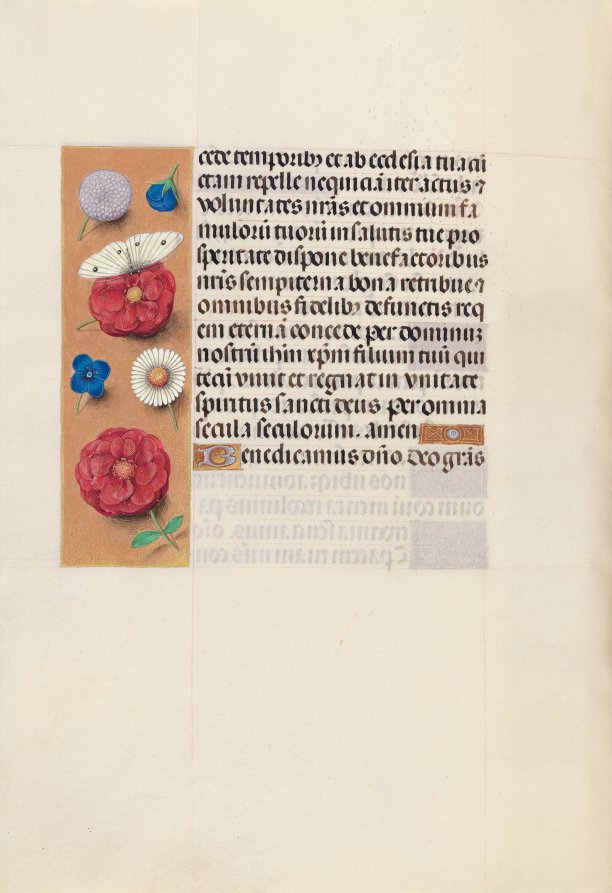 cede temporib⁹ et ab ecclesia tua cū
ctam repelle nequiciā iter actus ⁊
voluntates nr̄as et omnium fa
mulorū tuorū in salutis tue pro
speritate dispone benefactoribus
nr̄is sempiterna bona retribue ⁊
omnibus fidelib⁹ defunctis req
em eternā concede per dominuz
nostrū ihm̄ xp̄m filium tuū qui
tecū viuit et regnat in vnitate
spiritus sancti deus per omnia
secula seculorum. amen
Benedicamus dn̄o deo gr̄as